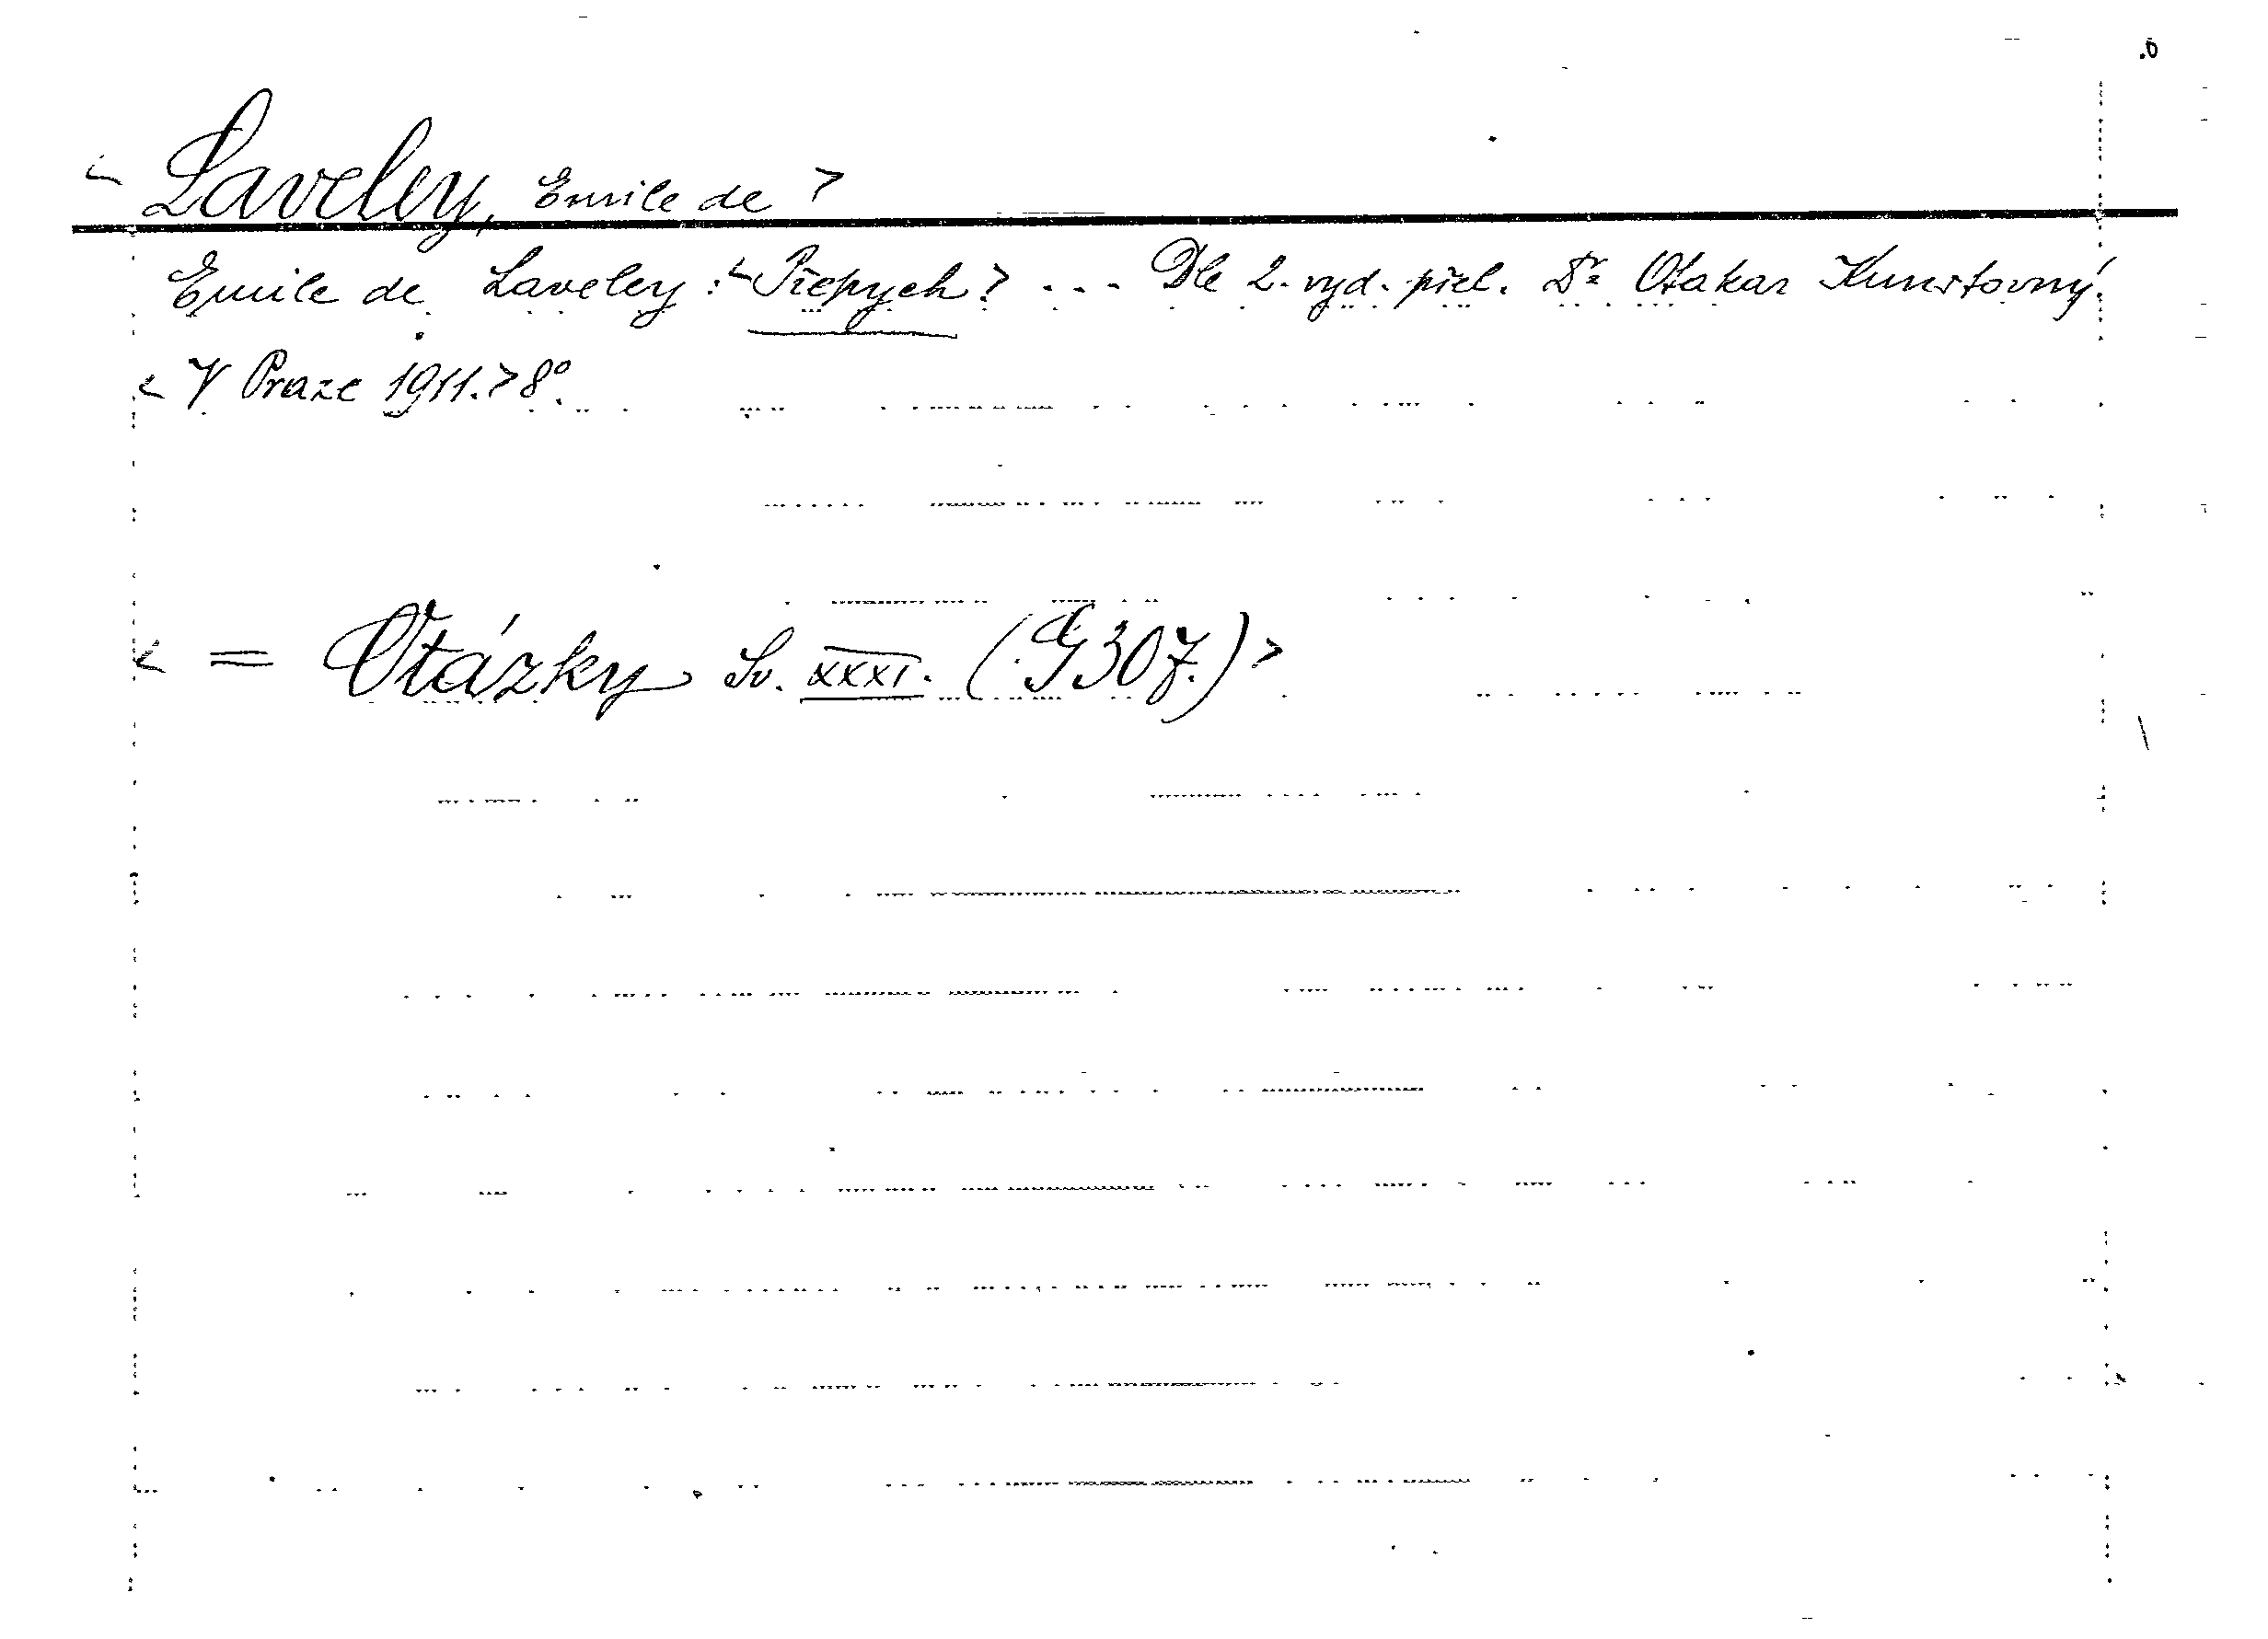 < Laveley, Emile de >
Emile de Laveley: < Přepych > ... Dle 2. vyd. přel. Dr Otakar Kunstovný.
< V Praze 1911. > 8°.
< = Otázky Sv. XXXI. (G 307.) >